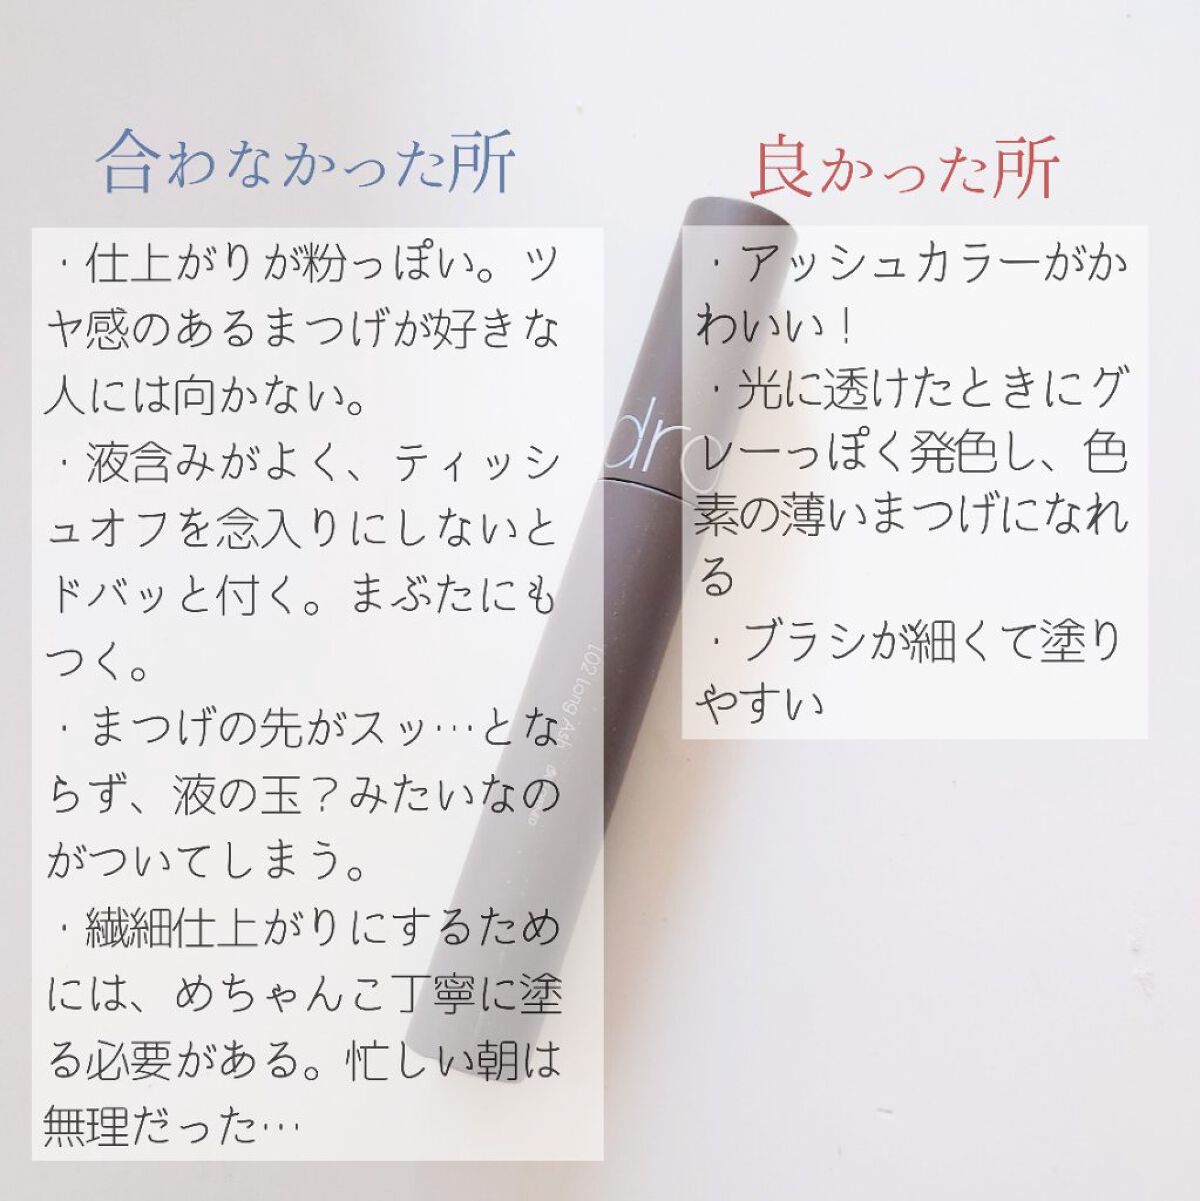 合わなかった所
・仕上がりが粉っぽい。ツ
ヤ感のあるまつげが好きな
人には向かない。
・液含みがよく、ティッシ
ュオフを念入りにしないと
ドバッと付く。まぶたにも
つく。
・まつげの先がスッ…とな
らず、液の玉？みたいなの
がついてしまう。
・繊細仕上がりにするため
には、めちゃんこ丁寧に塗
る必要がある。忙しい朝は
無理だった…
良かった所
・アッシュカラーがか
わいい！
・光に透けたときにグ
レーっぽく発色し、色
素の薄いまつげになれ
る
・ブラシが細くて塗り
やすい
dro
102 Long Ash